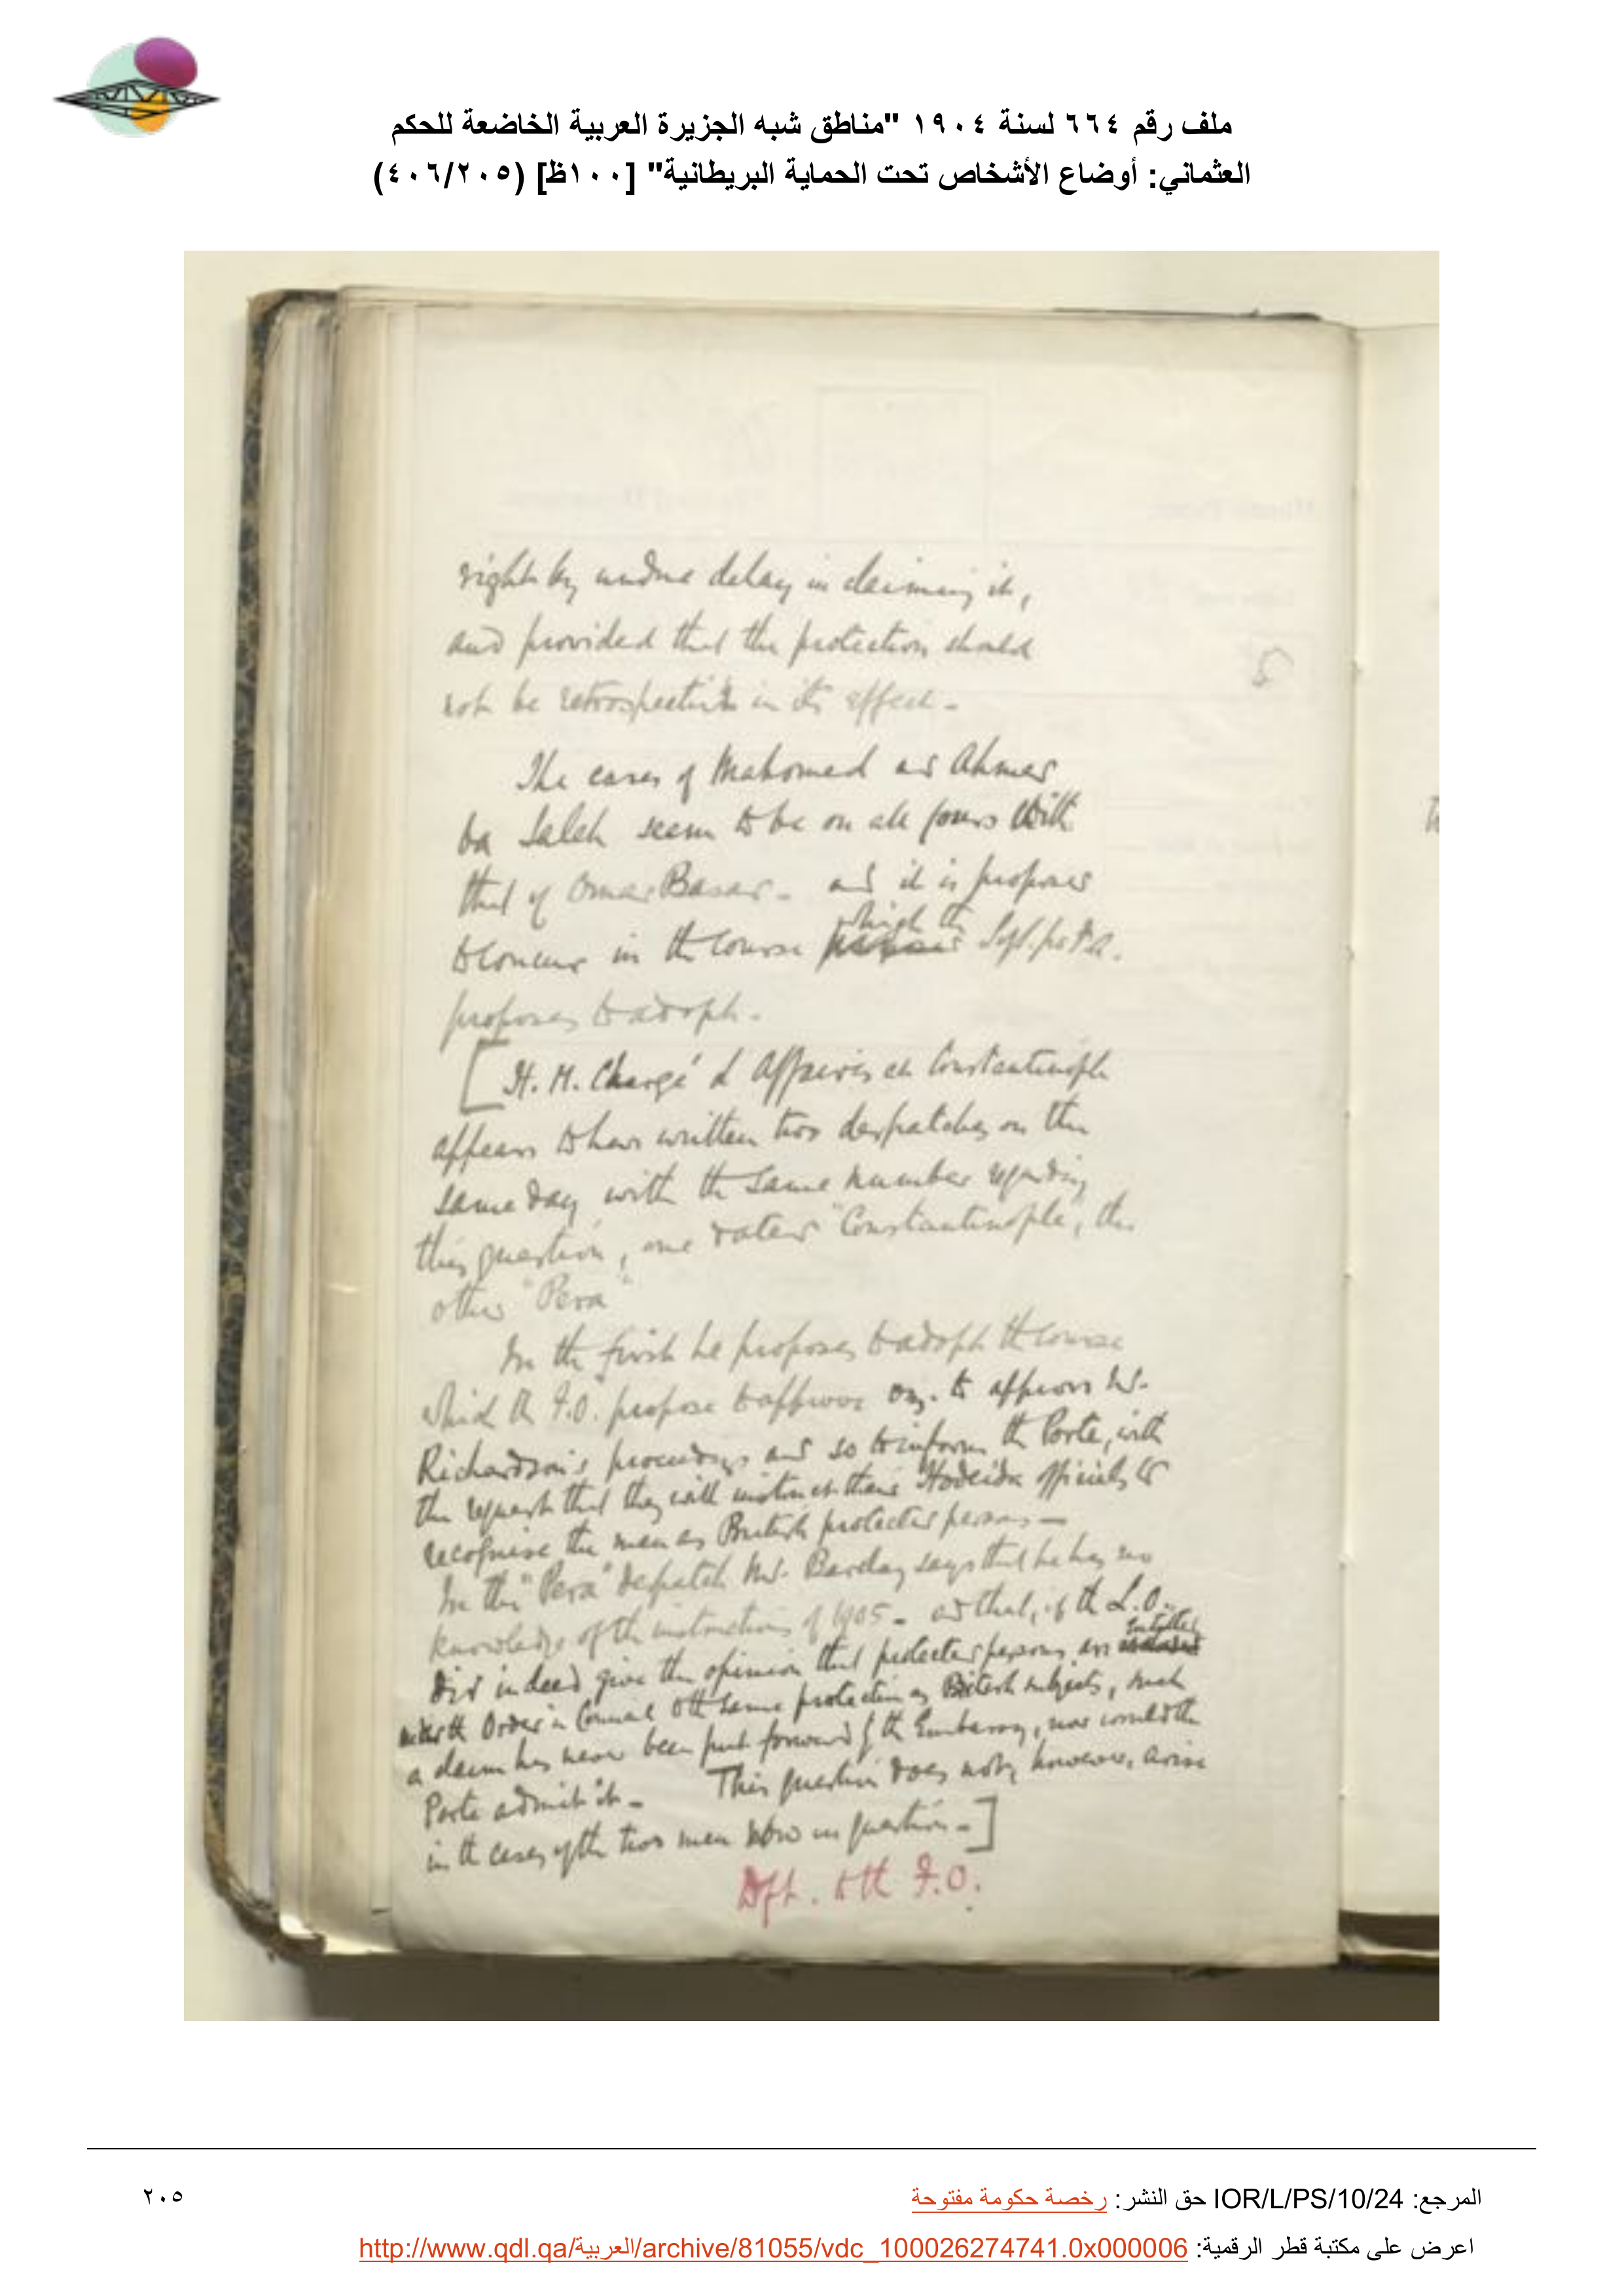 ملف رقم ٦٦٤ لسنة ١٩٠٤ "مناطق شبه الجزيرة العربية الخاضعة للحكم
العثماني: أوضاع الأشخاص تحت الحماية البريطانية" [١٠٠ظ] (٤٠٦/٢٠٥)
right by undue delay in claiming it,
and provided that the protection should
not be retrospective in its effect -
The cases of Mahomed and Ahmed
ba Saleh seem to be on all fours with
that of Omar Basar - and it is proposed
to concur in the course which the
proposes to adopt.
[H. M. Chargé d'Affaires at Constantinople
appears to have written two despatches on the
same day with the same number regarding
this question, one dated "Constantinople", the
other "Pera"
In the first he proposes to adopt the course
which the F.O. propose to approve viz. to approve Mr.
Richardson's proceedings and so to inform the Porte, with
the request that they will instruct their Hodeida officials to
recognise the men as British protected persons -
In the "Pera" despatch Mr. Barclay says that he has no
knowledge of the instructions of 1905 - and that, if the L.O.
did indeed give the opinion that protected persons are entitled
under the Order in Council to the same protection as British subjects, such
a claim has never been put forward by the Embassy, nor would the
Porte admit it - This question does not, however, arise
in the cases of the two men now in question -]
Dft. to the F.O.
المرجع: IOR/L/PS/10/24 حق النشر: رخصة حكومة مفتوحة
٢٠٥
اعرض على مكتبة قطر الرقمية: http://www.qdl.qa/العربية/archive/81055/vdc_100026274741.0x000006